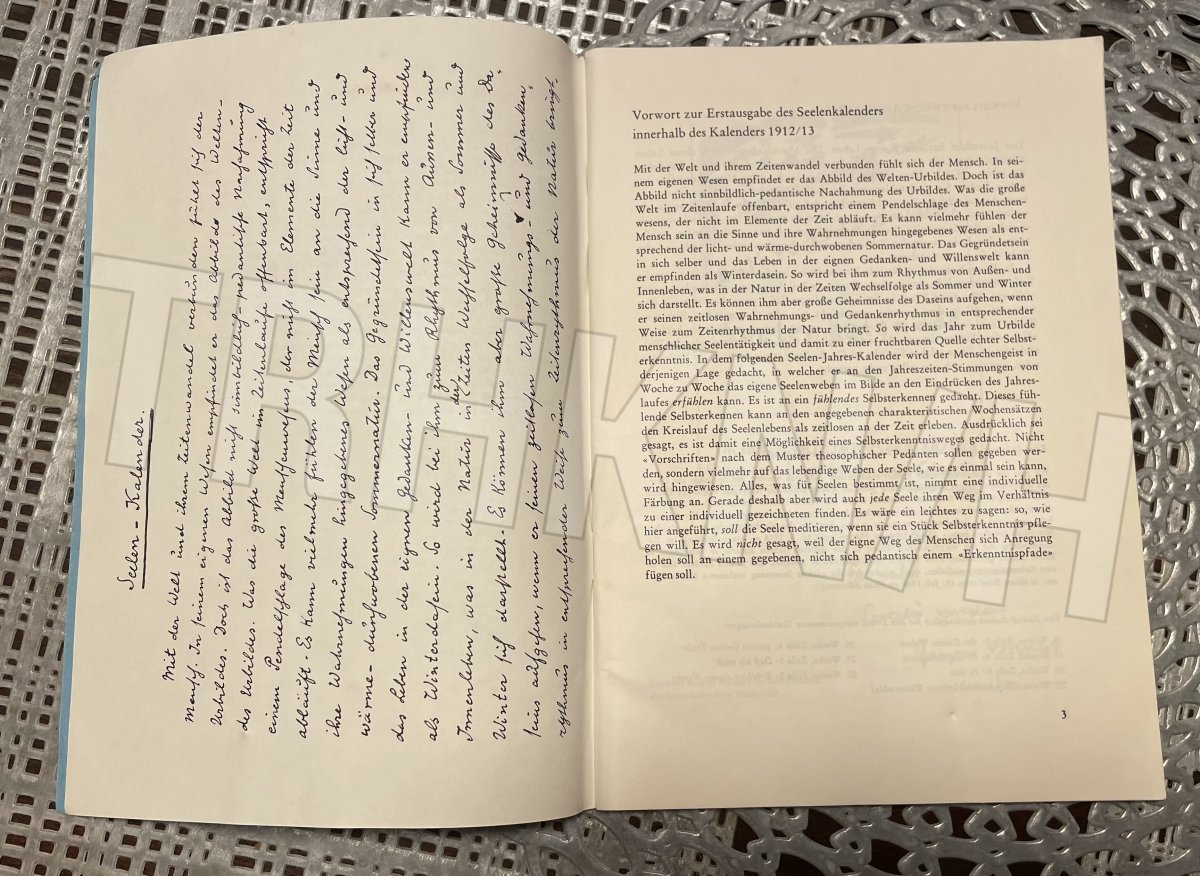 Seelen-Kalender.
Mit der Welt und ihrem Zeitenwandel verbunden fühlt sich der
Mensch. In seinem eigenen Wesen empfindet er das Abbild des Welten-
Urbildes. Doch ist das Abbild nicht sinnbildlich-pedantische Nachahmung
des Urbildes. Was die große Welt im Zeitenlaufe offenbart, entspricht
einem Pendelschlage des Menschenwesens, der nicht im Elemente der Zeit
abläuft. Es kann vielmehr fühlen der Mensch sein an die Sinne und
ihre Wahrnehmungen hingegebenes Wesen als entsprechend der licht- und
wärme-durchwobenen Sommernatur. Das Gegründetsein in sich selber und
das Leben in der eignen Gedanken- und Willenswelt kann er empfinden
als Winterdasein. So wird bei ihm zum Rhythmus von Außen- und
Innenleben, was in der Natur in der Zeiten Wechselfolge als Sommer und
Winter sich darstellt. Es können ihm aber große Geheimnisse des Da-
seins aufgehen, wenn er seinen zeitlosen Wahrnehmungs- und Gedanken-
rythmus in entsprechender Weise zum Zeitenrythmus der Natur bringt.
Vorwort zur Erstausgabe des Seelenkalenders
innerhalb des Kalenders 1912/13
Mit der Welt und ihrem Zeitenwandel verbunden fühlt sich der Mensch. In sei-
nem eigenen Wesen empfindet er das Abbild des Welten-Urbildes. Doch ist das
Abbild nicht sinnbildlich-pedantische Nachahmung des Urbildes. Was die große
Welt im Zeitenlaufe offenbart, entspricht einem Pendelschlage des Menschen-
wesens, der nicht im Elemente der Zeit abläuft. Es kann vielmehr fühlen der
Mensch sein an die Sinne und ihre Wahrnehmungen hingegebenes Wesen als ent-
sprechend der licht- und wärme-durchwobenen Sommernatur. Das Gegründetsein
in sich selber und das Leben in der eignen Gedanken- und Willenswelt kann
er empfinden als Winterdasein. So wird bei ihm zum Rhythmus von Außen- und
Innenleben, was in der Natur in der Zeiten Wechselfolge als Sommer und Winter
sich darstellt. Es können ihm aber große Geheimnisse des Daseins aufgehen, wenn
er seinen zeitlosen Wahrnehmungs- und Gedankenrhythmus in entsprechender
Weise zum Zeitenrhythmus der Natur bringt. So wird das Jahr zum Urbilde
menschlicher Seelentätigkeit und damit zu einer fruchtbaren Quelle echter Selbst-
erkenntnis. In dem folgenden Seelen-Jahres-Kalender wird der Menschengeist in
derjenigen Lage gedacht, in welcher er an den Jahreszeiten-Stimmungen von
Woche zu Woche das eigene Seelenweben im Bilde an den Eindrücken des Jahres-
laufes erfühlen kann. Es ist an ein fühlendes Selbsterkennen gedacht. Dieses füh-
lende Selbsterkennen kann an den angegebenen charakteristischen Wochensätzen
den Kreislauf des Seelenlebens als zeitlosen an der Zeit erleben. Ausdrücklich sei
gesagt, es ist damit eine Möglichkeit eines Selbsterkenntnisweges gedacht. Nicht
«Vorschriften» nach dem Muster theosophischer Pedanten sollen gegeben wer-
den, sondern vielmehr auf das lebendige Weben der Seele, wie es einmal sein kann,
wird hingewiesen. Alles, was für Seelen bestimmt ist, nimmt eine individuelle
Färbung an. Gerade deshalb aber wird auch jede Seele ihren Weg im Verhältnis
zu einer individuell gezeichneten finden. Es wäre ein leichtes zu sagen: so, wie
hier angeführt, soll die Seele meditieren, wenn sie ein Stück Selbsterkenntnis pfle-
gen will. Es wird nicht gesagt, weil der eigne Weg des Menschen sich Anregung
holen soll an einem gegebenen, nicht sich pedantisch einem «Erkenntnispfade»
fügen soll.
3